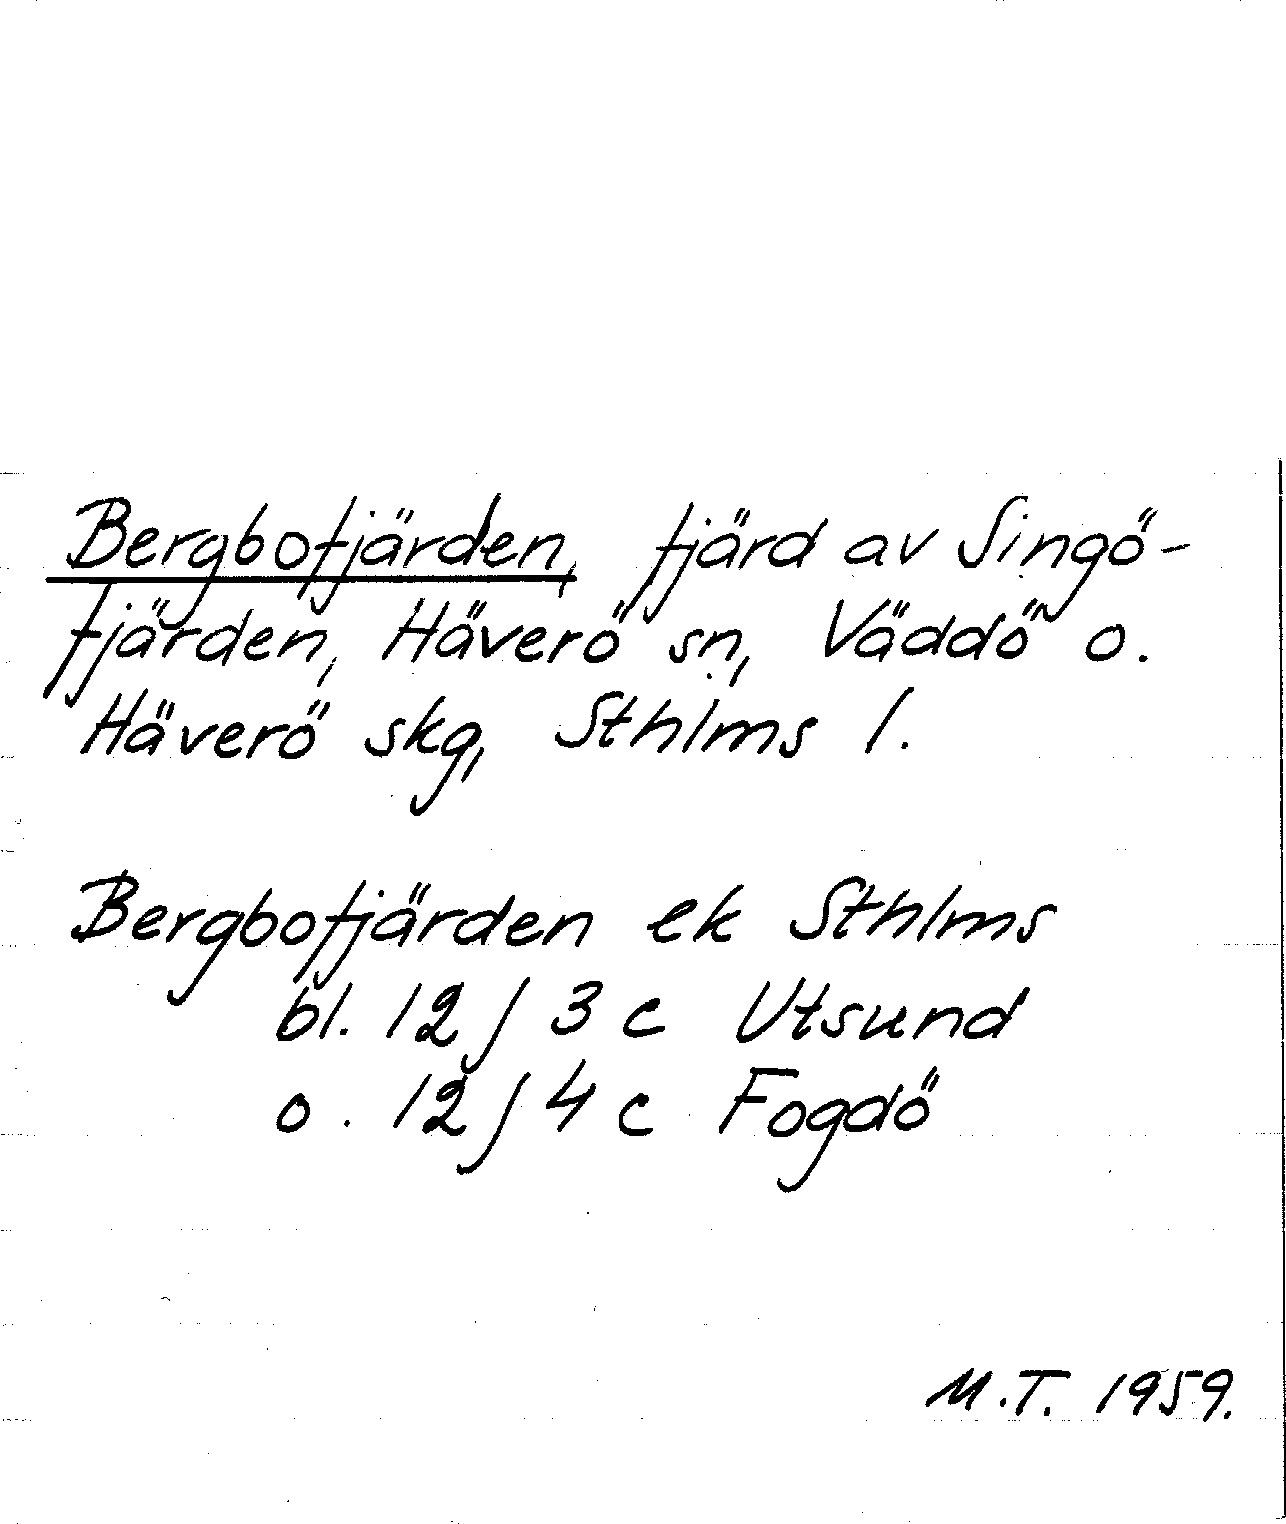 Bergbofjärden, fjärd av Singö-
fjärden, Häverö sn, Väddö o.
Häverö skg, Sthlms l.
Bergbofjärden ek Sthlms
bl. 12 J 3 c Utsund
o. 12 J 4 c Fogdö
M.T. 1959.